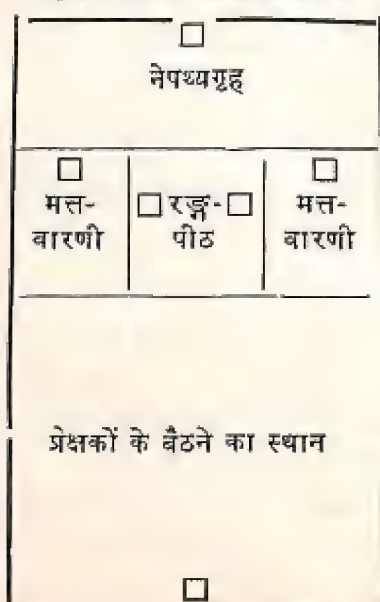 नेपथ्यगृह
मत्त-
वारणी
रङ्ग-
पीठ
मत्त-
वारणी
प्रेक्षकों के बैठने का स्थान